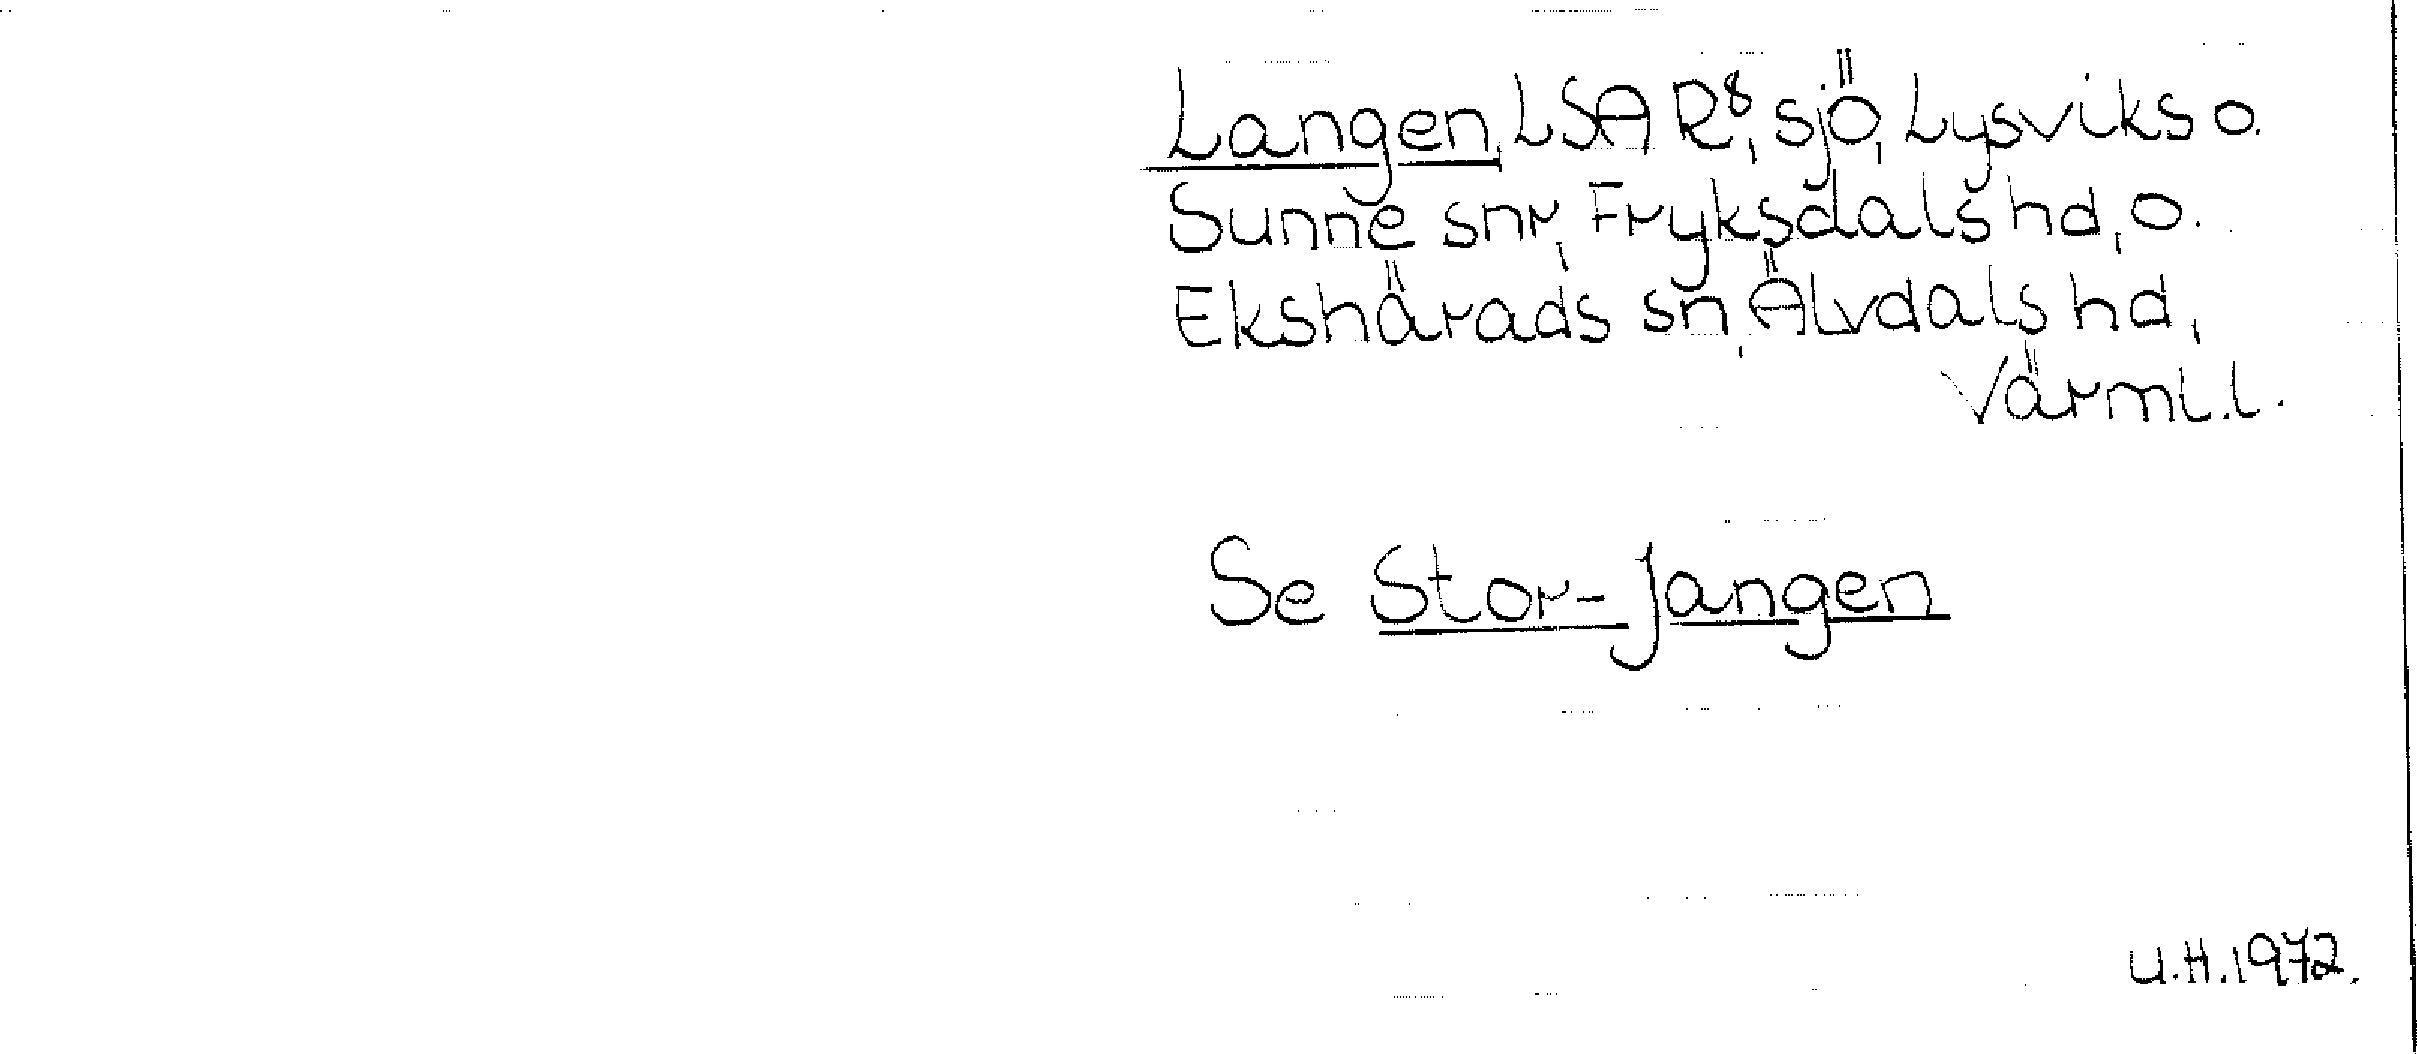 Langen, LSA R⁸, sjö, Lysviks o.
Sunne snr, Fryksdals hd, o.
Ekshärads sn, Älvdals hd,
Värml.l.
Se Stor-jangen
U.H.1972.